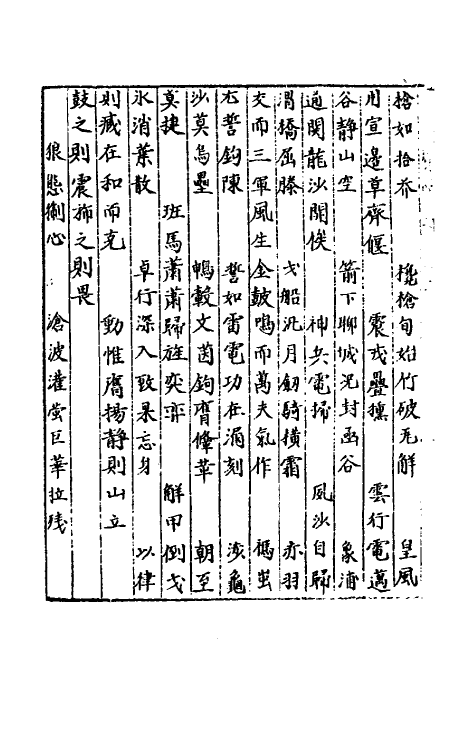 捨如拾芥　攙槍旬始竹破瓦解　皇風
用宣邊草齊偃　震戎疊獯　雲行電邁
谷静山空　箭下聊城泥封函谷　象浦
通関龍沙開俟　神兵電掃　風沙自歸
渭橋屈膝　戈船汎月劒騎横霜　亦羽
交而三軍風生金鼓鳴而萬夫氣作　禡蚩
尤誓鈎陳　誓如雷電功在漏刻　涉龜
沙莫烏壘　鳴轂文茵鉤膺鞗革　朝至
莫捷　班馬蕭蕭歸旌奕弈　解甲倒戈
氷消葉散　卓行深入致果忘身　以律
則臧在和而克　動惟鷹揚静則山立
鼓之則震揚之則畏
狼慙御心　滄波灌螢巨華拉残